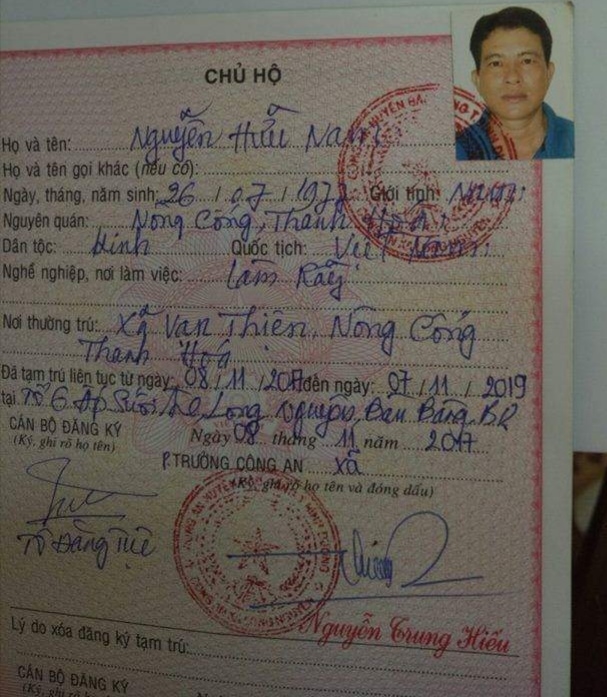 CHỦ HỘ
Họ và tên: Nguyễn Hữu Nam
Họ và tên gọi khác (nếu có):
Ngày, tháng, năm sinh: 26 / 07 / 1977 Giới tính: Nam
Nguyên quán: Nông Cống, Thanh Hoá
Dân tộc: Kinh Quốc tịch: Việt Nam
Nghề nghiệp, nơi làm việc: Làm Rẫy
Nơi thường trú: Xã Vạn Thiện, Nông Cống
Thanh Hoá
Đã tạm trú liên tục từ ngày: 08 / 11 / 2017 đến ngày: 07 / 11 / 2019
tại Tổ 6 Ấp Suối Long Nguyên, Bàu Bàng, BD
CÁN BỘ ĐĂNG KÝ Ngày 08 tháng 11 năm 2017
(Ký, ghi rõ họ tên) P. TRƯỞNG CÔNG AN xã
(Ký, ghi rõ họ tên và đóng dấu)
Tô Đăng Tuệ
Nguyễn Trung Hiếu
Lý do xóa đăng ký tạm trú:
CÁN BỘ ĐĂNG KÝ
(Ký, ghi rõ họ tên)